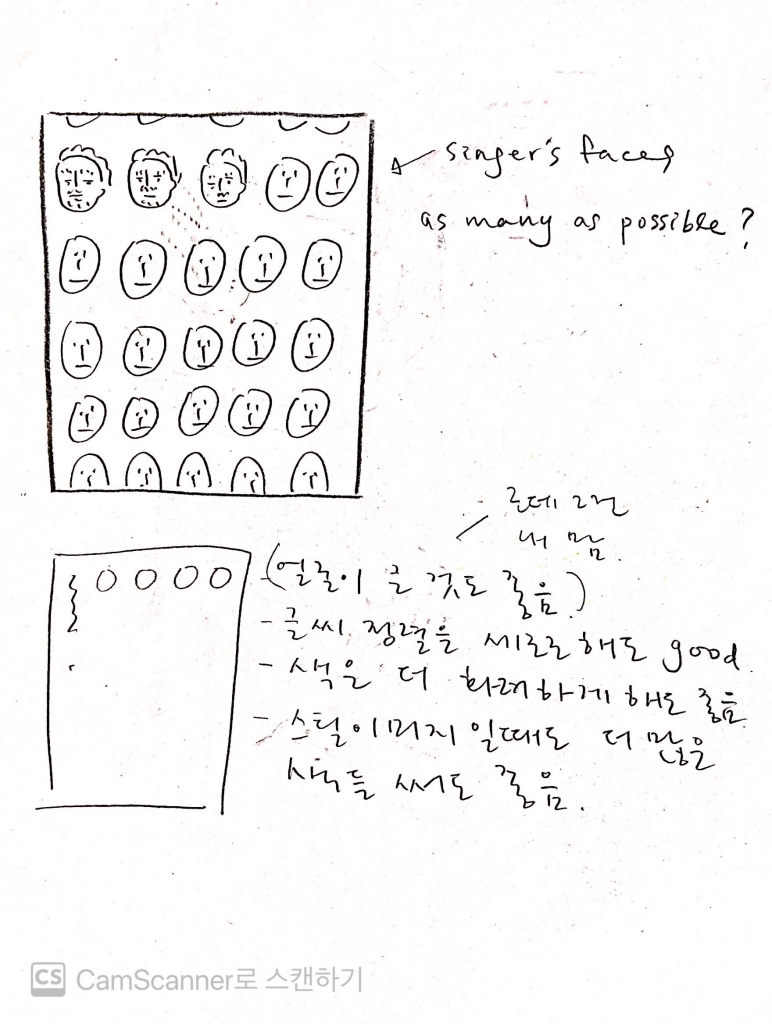 singer's faces
as many as possible?
근데 그건
내 맘.
(얼굴이 큰 것도 좋음.)
- 글씨 정렬을 세로로 해도 good.
- 색은 더 화려하게 해도 좋음
- 스틸이미지 일때도 더 많은
색들 써도 좋음.
CS CamScanner로 스캔하기